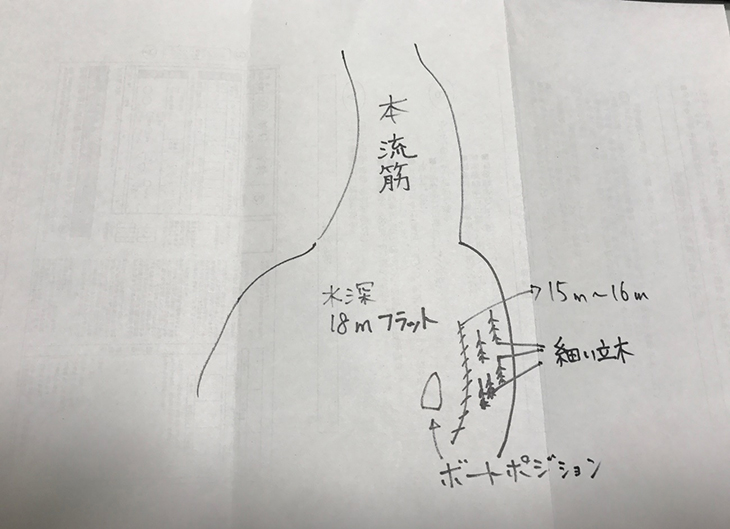 本流筋
水深
18mフラット
15m~16m
細い立木
ボートポジション